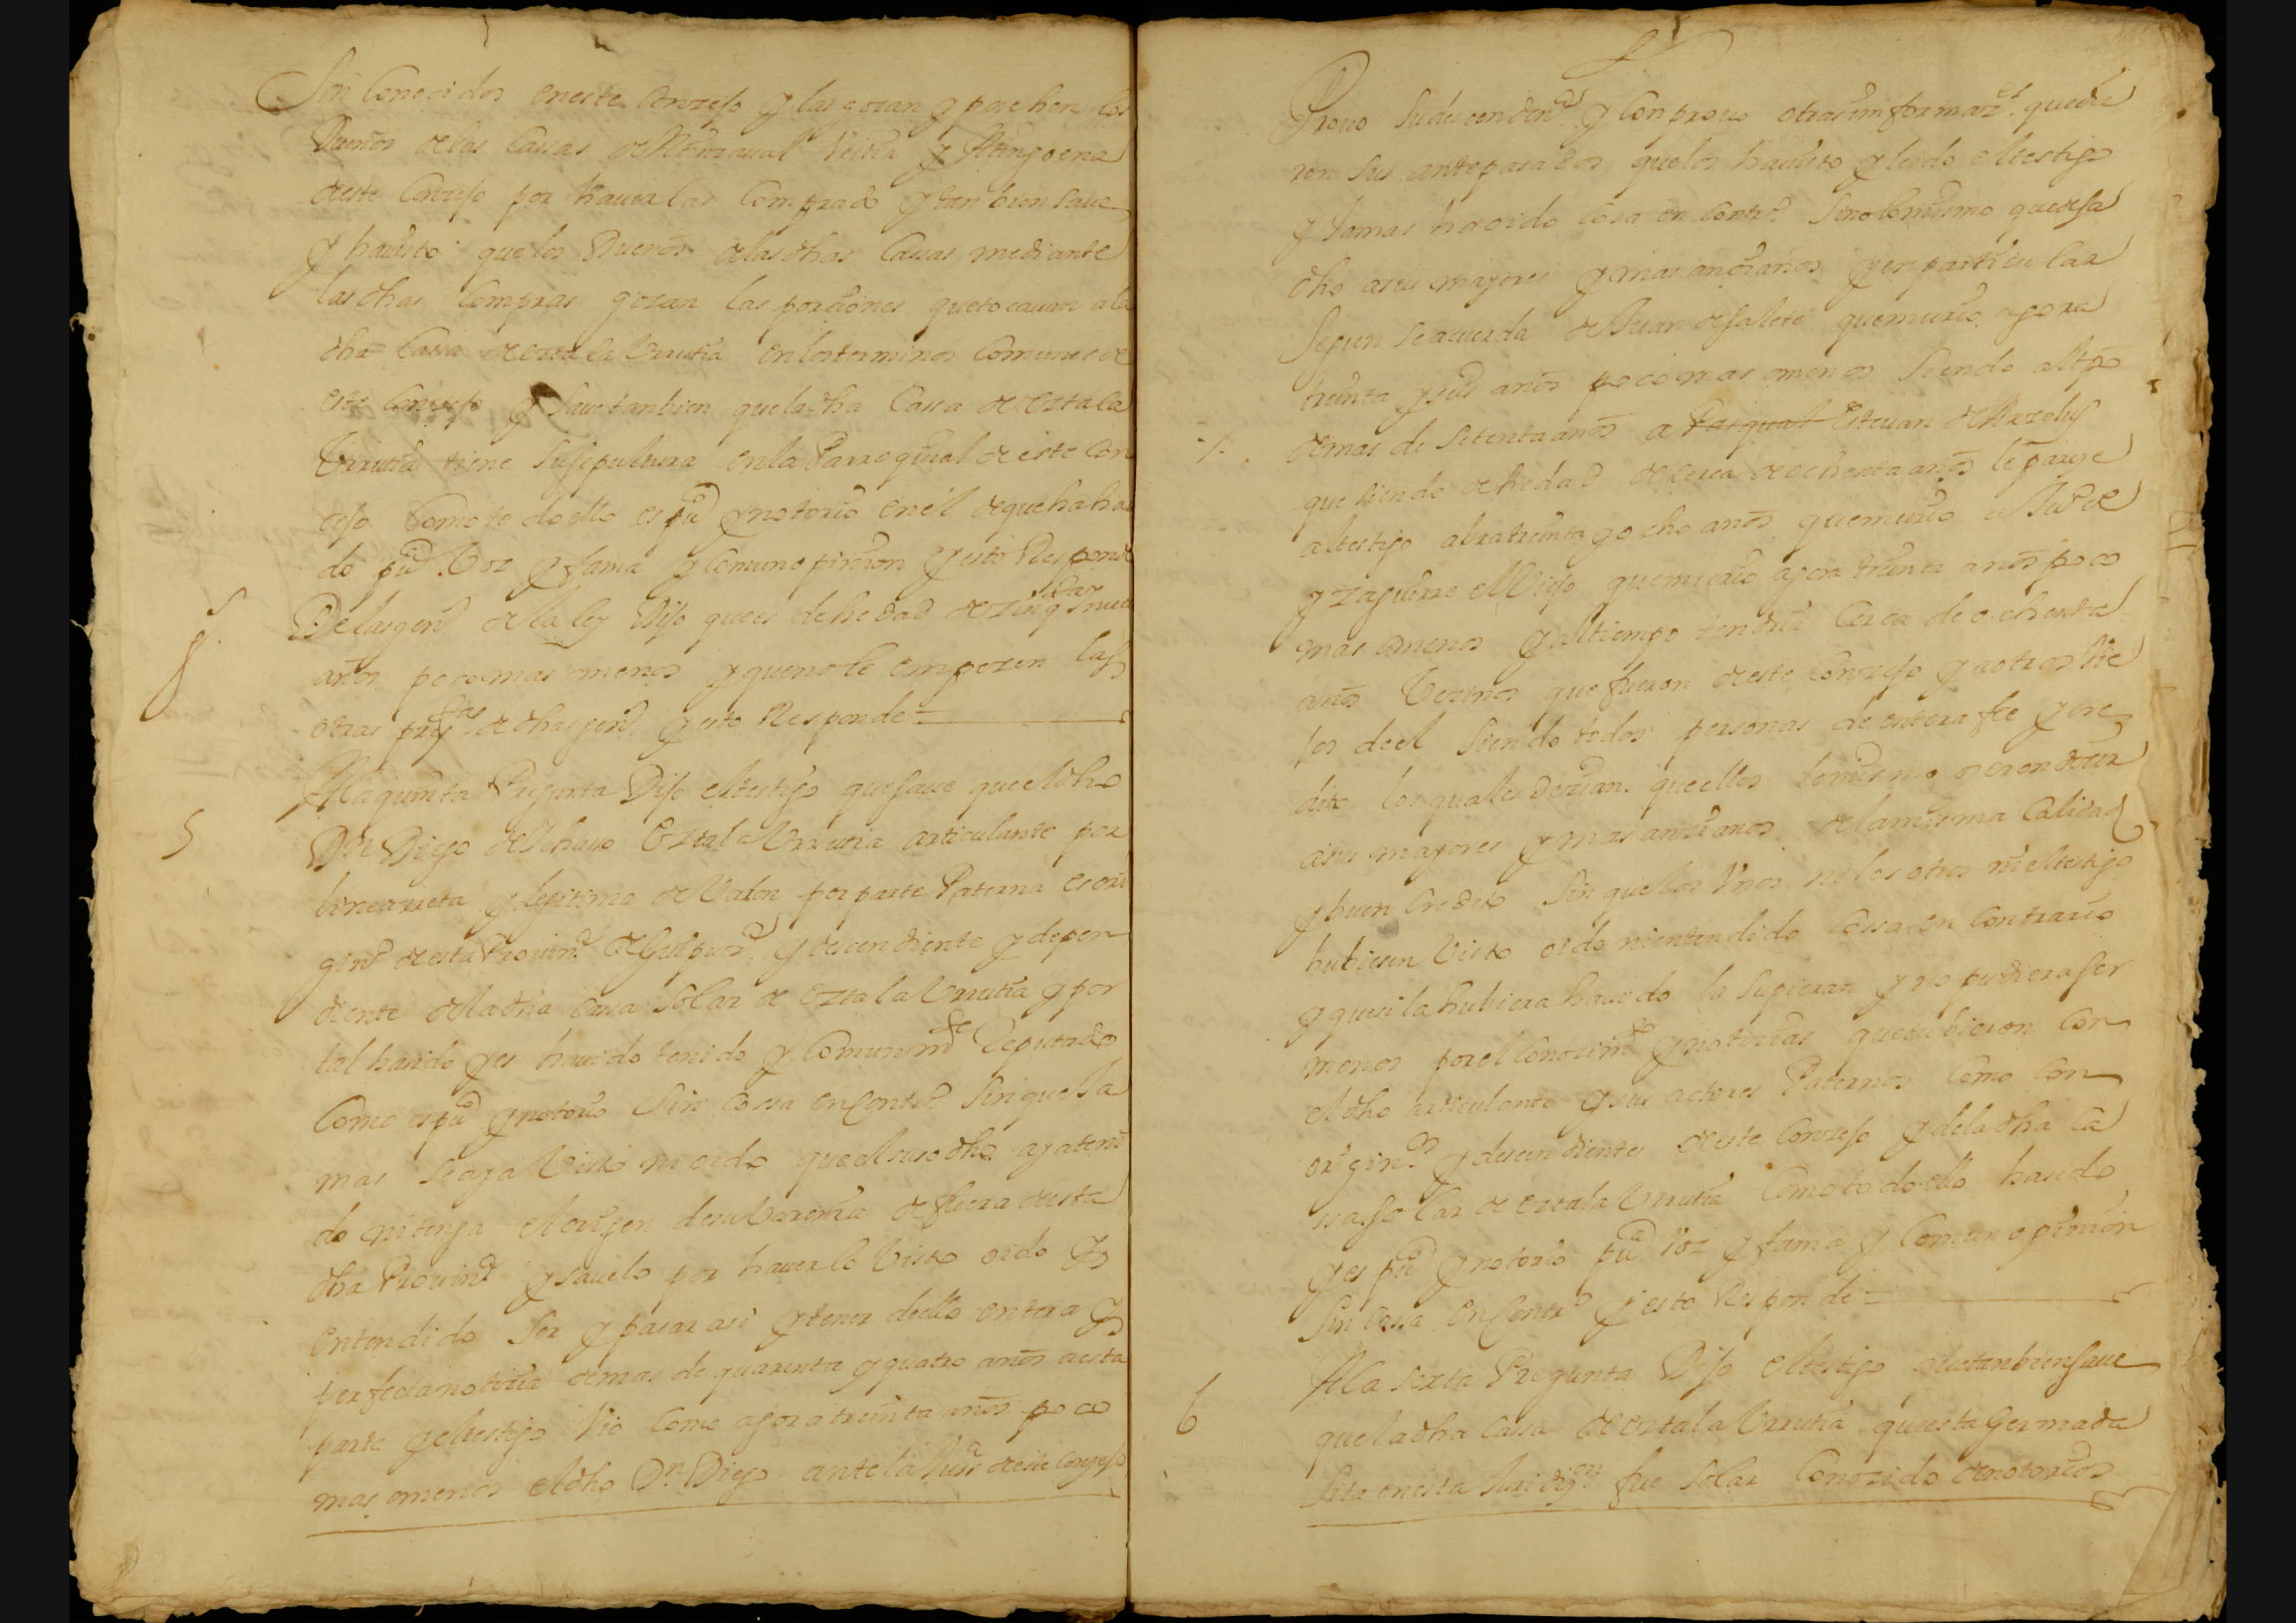 Son Conocidos en este Conzejo y las gozan y posehen los
Dueños de las Cassas de Veitia y Aranzgoena
de este Conzejo por haverlas Comprado y tanbien save
y ha visto que los Dueños de las dhas Cassas mediante
las dhas Compras gozan las porciones que tocavan a la
dha Cassa de Oztala Vrrutia en los terminos Comunes de
este Conzejo y save tanbien que la dha Cassa de Oztala
Vrrutia tiene su sepultura en la Parroquial de este Con
cejo Como todo ello es pu.co y notorio en el de que ha havi
do pu.ca Voz y fama y Comun opinion y esto Responde
De las gen.s de la ley Dijo que es de hedad de zinq.ta y nueve
años poco mas o menos y que no le empezen las
otras preg.tas de dhas gen.s y esto Responde=
5 A la quinta Pregunta Dijo el testigo que save que el dho
Dn Diego de Oztala Vrrutia articulante por
linea recta y lejitima de Varon por parte Paterna es ori
gin.o de esta Provin.a de Guipuz.a y descendiente y depen
diente de la dha Cassa Solar de Oztala Vrrutia y por
tal ha sido y es havido tenido y Comunm.te Reputado
Como es pu.co y notorio Sin Cossa en Contr.o Sin que Ja
mas se aya Visto ni oido que el suso dho aya teni
do ni tenga el orijen de su Varonia de fuera de esta
dha Provin.a y savelo por haverlo Visto oido y
entendido Ser y pasar asi y tener de ello entera y
perfecta noticia de mas de quarenta y quatro años a esta
parte y el testigo Vio Como agora treinta años poco
mas o menos el dho Dn. Diego ante la Just.a de este Conzejo
Provo Su descenden.a y Con presen otras informaz.es que die
ron sus antepasados que los ha visto y leido el testigo
y Jamas ha oido Cosa en Contr.o Sino lo mismo que deja
dho a sus mayores y mas anzianos y en particular
Segun se acuerda de Juan de Galete que murio agora
treinta y seis años poco mas o menos Siendo al tpo
de mas de Setenta años a Pasqual Estevan de
que siendo de hedad de cerca de ochenta años le pareze
al testigo abra treinta y ocho años que murio a Ju.o de
Yzaguirre el Viejo que murio agora treinta años poco
mas o menos y al tiempo tendria Cerca de ochenta
años Vezinos que fueron de este Conzejo y a otros Vie
jos de el Siendo todos personas de entera fee y cre
dito los quales dezian que ellos lo mismo oyeron dezir
a sus mayores y mas anzianos de la misma Calidad
y buen Credito Sin que los Vnos ni los otros ni el testigo
hubiesen Visto oido ni entendido Cossa en Contrario
y que si la hubiera havido lo Supieran y no pudiera ser
menos por el Conozim.to y noticias que tubieron Con
el dho articulante y sus actores Paternos Como Con
origin.s y descendientes de este Conzejo y de la dha Ca
ssa Solar de Oztala Vrrutia Como todo ello ha sido
y es pu.co y notorio pu.ca Voz y fama y Comun opinion
Sin Cossa en Contr.o y esto Responde=
6 A la Sexta Pregunta Dijo el testigo que tanbien save
que la dha Cassa de Oztala Vrrutia que esta Yermada
Sita en esta Juridi.on fue Solar Conozido de notorios